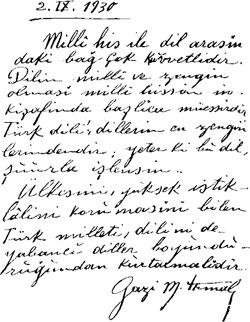 2.IX.1930
Milli his ile dil arasın
daki bağ çok kuvvetlidir.
Dilin milli ve zengin
olması milli hissin in
kişafında başlıca müessirdir.
Türk dili, dillerin en zengin
lerindendir, yeter ki bu dil,
şuurla işlensin.
Ülkesini, yüksek istik
lâlini korumasını bilen
Türk milleti, dilini de
yabancı diller boyundu
ruğundan kurtarmalıdır.
Gazi M. Kemal